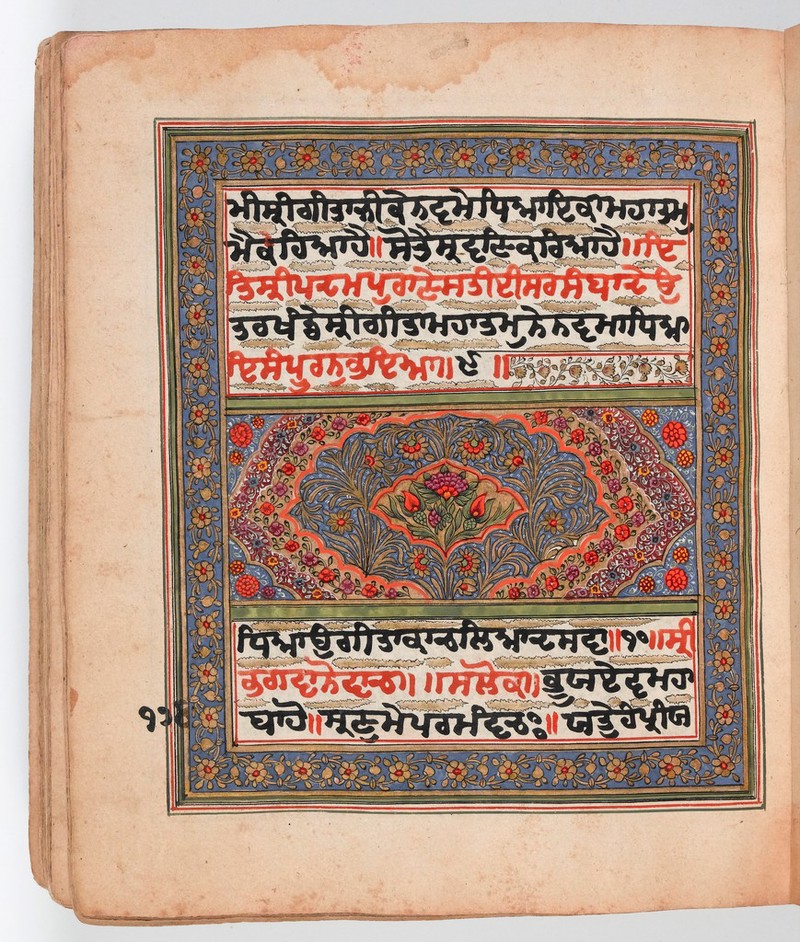 ਮੀਸ੍ਰੀਗੀਤਾਜੀਕੇਨਵਮੇਧਿਆਇਕਾਮਹਾਤਮੁ
ਮੈਕਹਿਆਹੈ॥ ਸੋਤੈਸ੍ਰਵਣਿਕਰਿਆਹੈ॥ਇ
ਤਿਸ੍ਰੀਪਦਮਪੁਰਾਣੇਸਤੀਈਸਰਸੰਬਾਦੇਉ
ਤਰਖੰਡੇਸ੍ਰੀਗੀਤਾਮਹਾਤਮੁਨੇਨਵਮਾਧਿਆ
ਇਸੰਪੂਰਨੁਭਇਆ॥੯॥
ਧਿਆਉਗੀਤਾਕਾਲਿਆਦਸਵਾ॥੧੦॥ਸ੍ਰੀ
ਭਗਵਾਨੋਵਾਚ॥ ॥ਸਲੋਕ॥ਭੂਯਏਵਮਹਾ
ਬਾਹੋ॥ਸ੍ਰਣੁਮੇਪਰਮੰਵਚਃ॥ ਯਤੇਹੰਪ੍ਰੀਯ